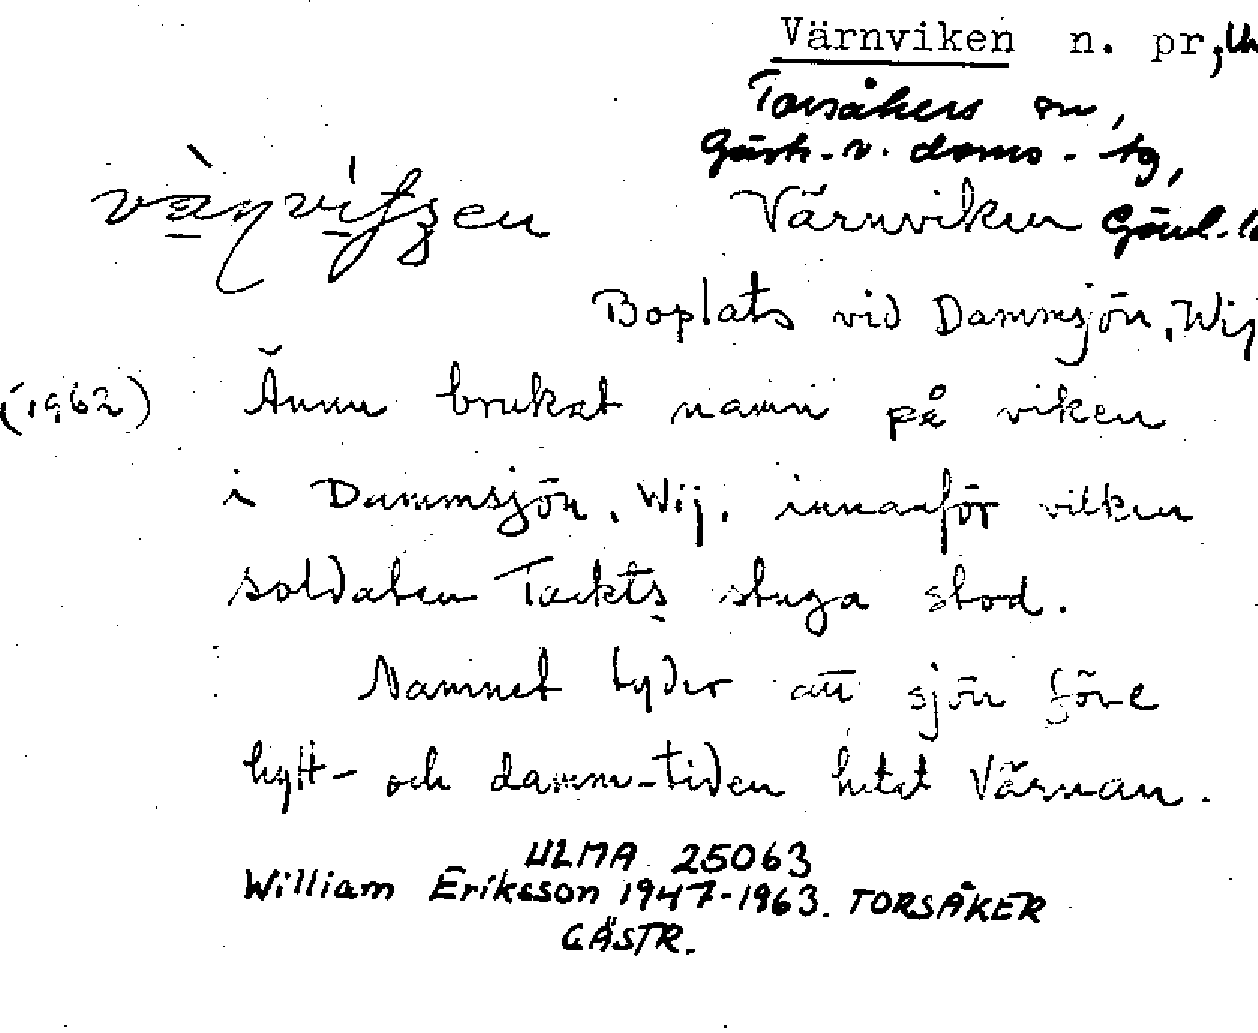 Värnviken n. pr,
Torsåkers sn,
Gästr. v. doms. tg,
Värnviken Gävl. l
Boplats vid Dammsjön, Wij
(1962) Ännu brukat namn på viken
i Dammsjön, Wij, innanför vilken
soldaten Täckts stuga stod.
Namnet tyder att sjön före
hytt- och damm-tiden hetat Värnan.
ULMA 25063
William Eriksson 1947-1963. TORSÅKER
GÄSTR.